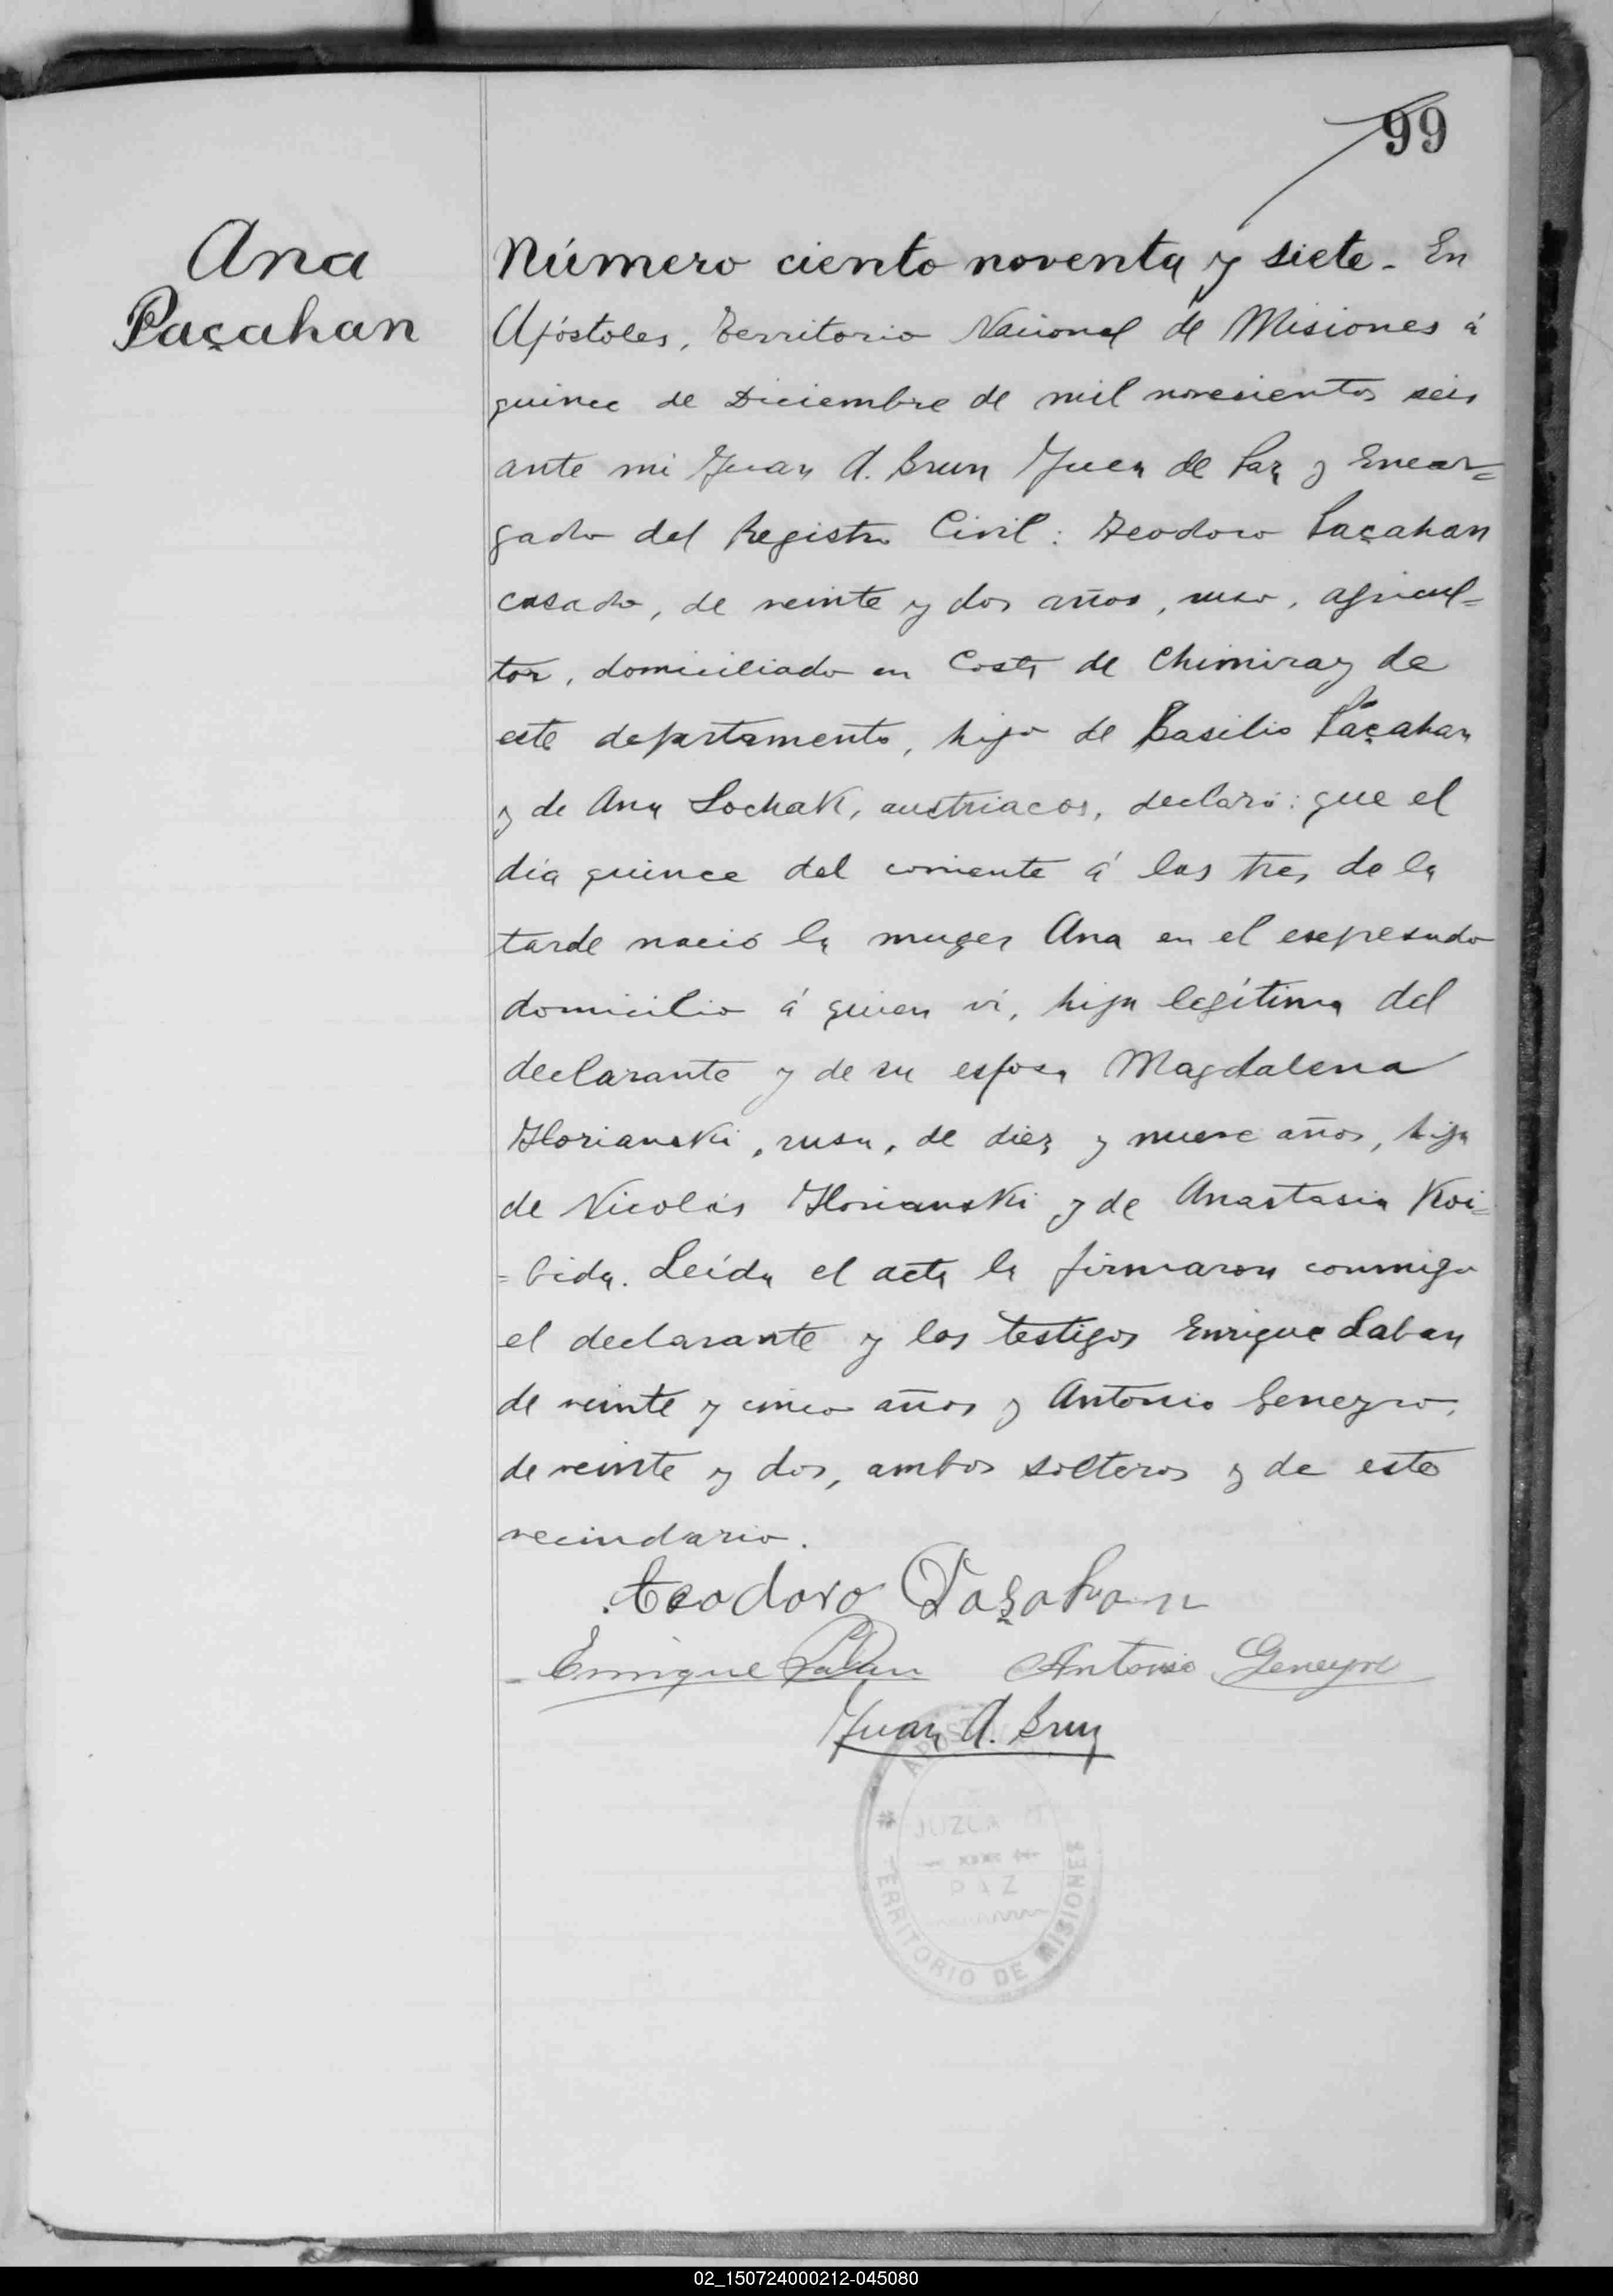 99
Ana
Paçahan
Número ciento noventa y siete - En
Apóstoles, Territorio Nacional de Misiones á
quince de Diciembre de mil novecientos seis
ante mi Juan A. Brun Juez de Paz y Encar=
gado del Registro Civil: Teodoro Paçahan
casado, de veinte y dos años, ruso, agricul=
tor, domiciliado en Costa de Chimiray de
este departamento, hijo de Basilio Paçahan
y de Ana Lochak, austriacos, declaró: que el
día quince del corriente á las tres de la
tarde nació la muger Ana en el expresado
domicilio á quien ví, hija legítima del
declarante y de su esposa Magdalena
Horianski, rusa, de diez y nueve años, hija
de Nicolás Horianski y de Anastasia Koi=
=bida. Leída el acta la firmaron conmigo
el declarante y los testigos Enrique Laban
de veinte y cinco años y Antonio Geneyro,
de veinte y dos, ambos solteros y de este
vecindario.
Teodoro Paçahan
Enrique Laban Antonio Geneyro
Juan A. Brun
JUZGA
PAZ
TERRITORIO DE MISIONES
02_150724000212-045080